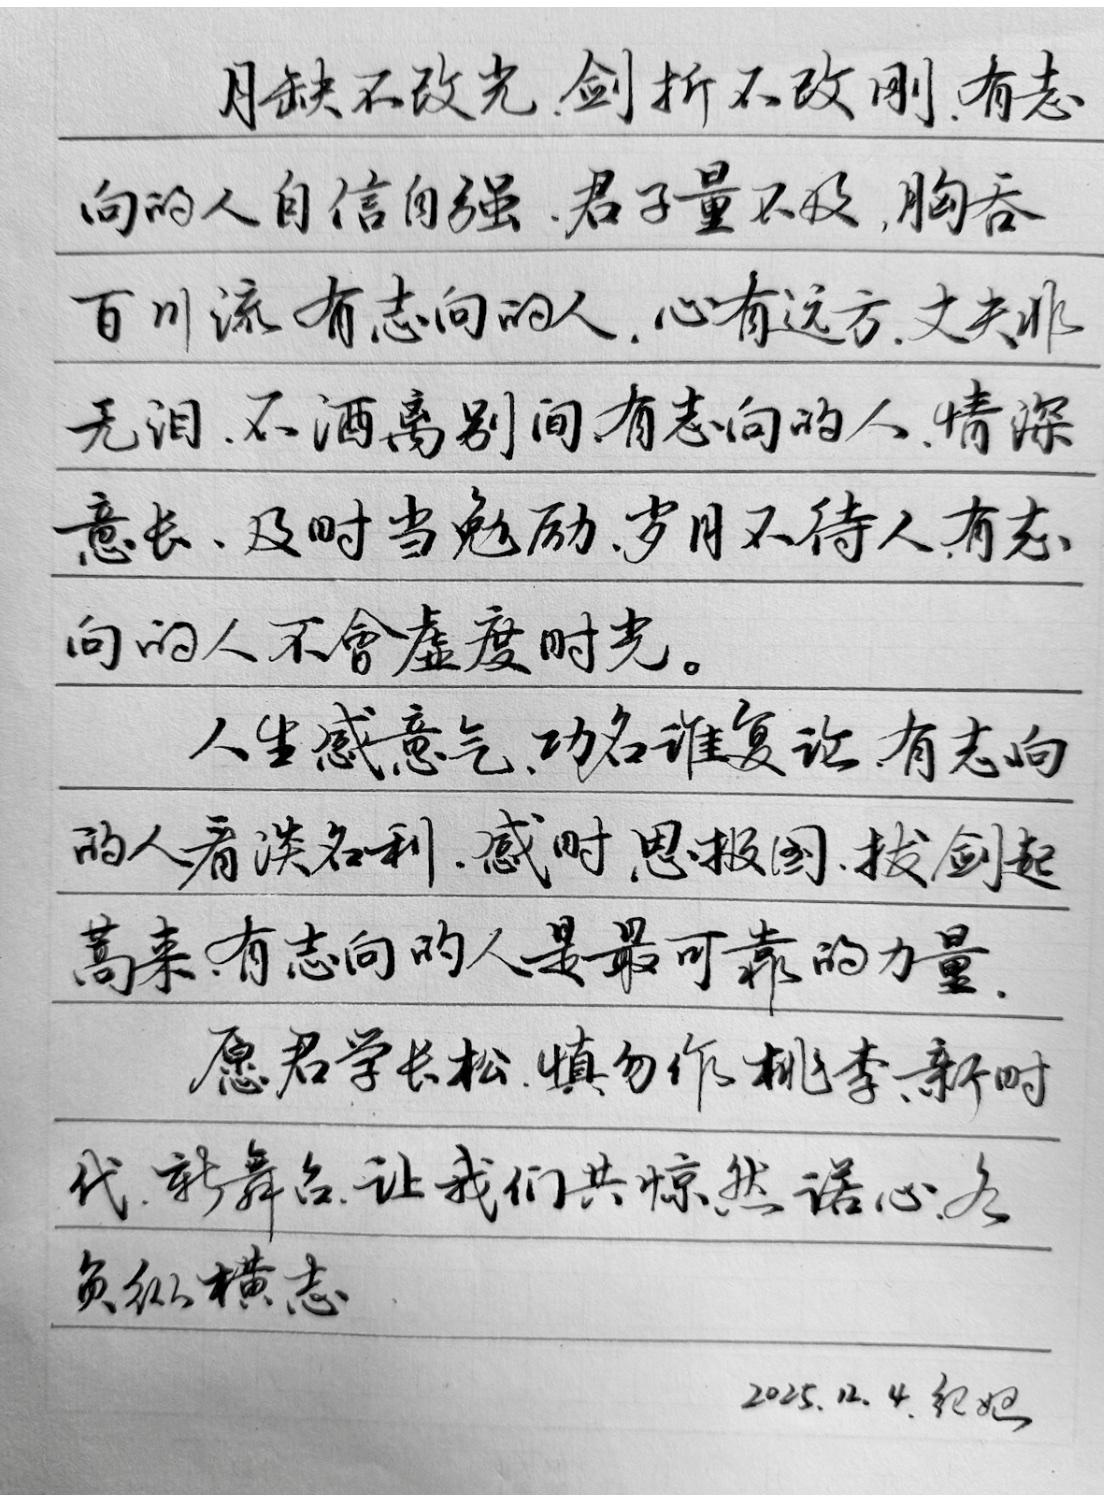 月缺不改光、剑折不改刚、有志
向的人自信自强、君子量不及,胸吞
百川流 有志向的人、心有远方、丈夫非
无泪、不洒离别间、有志向的人、情深
意长、及时当勉励、岁月不待人、有志
向的人不会虚度时光。
人生感意气、功名谁复论、有志向
的人看淡名利、感时思报国、拔剑起
蒿来、有志向的人是最可靠的力量、
愿君学长松、慎勿作桃李、新时
代、新舞台、让我们共惊然诺心、各
负纵横志
2025.12.4.